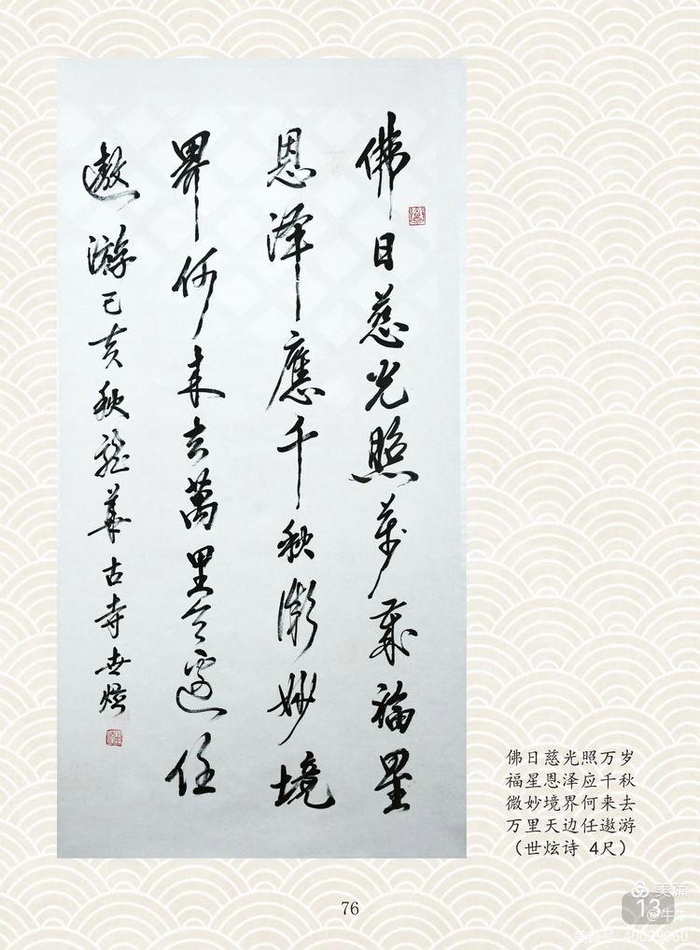 佛日慈光照萬歲福星
恩澤應千秋微妙境
界何来去萬里天邊任
遨游己亥秋龍華古寺世炫
佛日慈光照万岁
福星恩泽应千秋
微妙境界何来去
万里天边任遨游
（世炫诗 4尺）
76
美篇
13